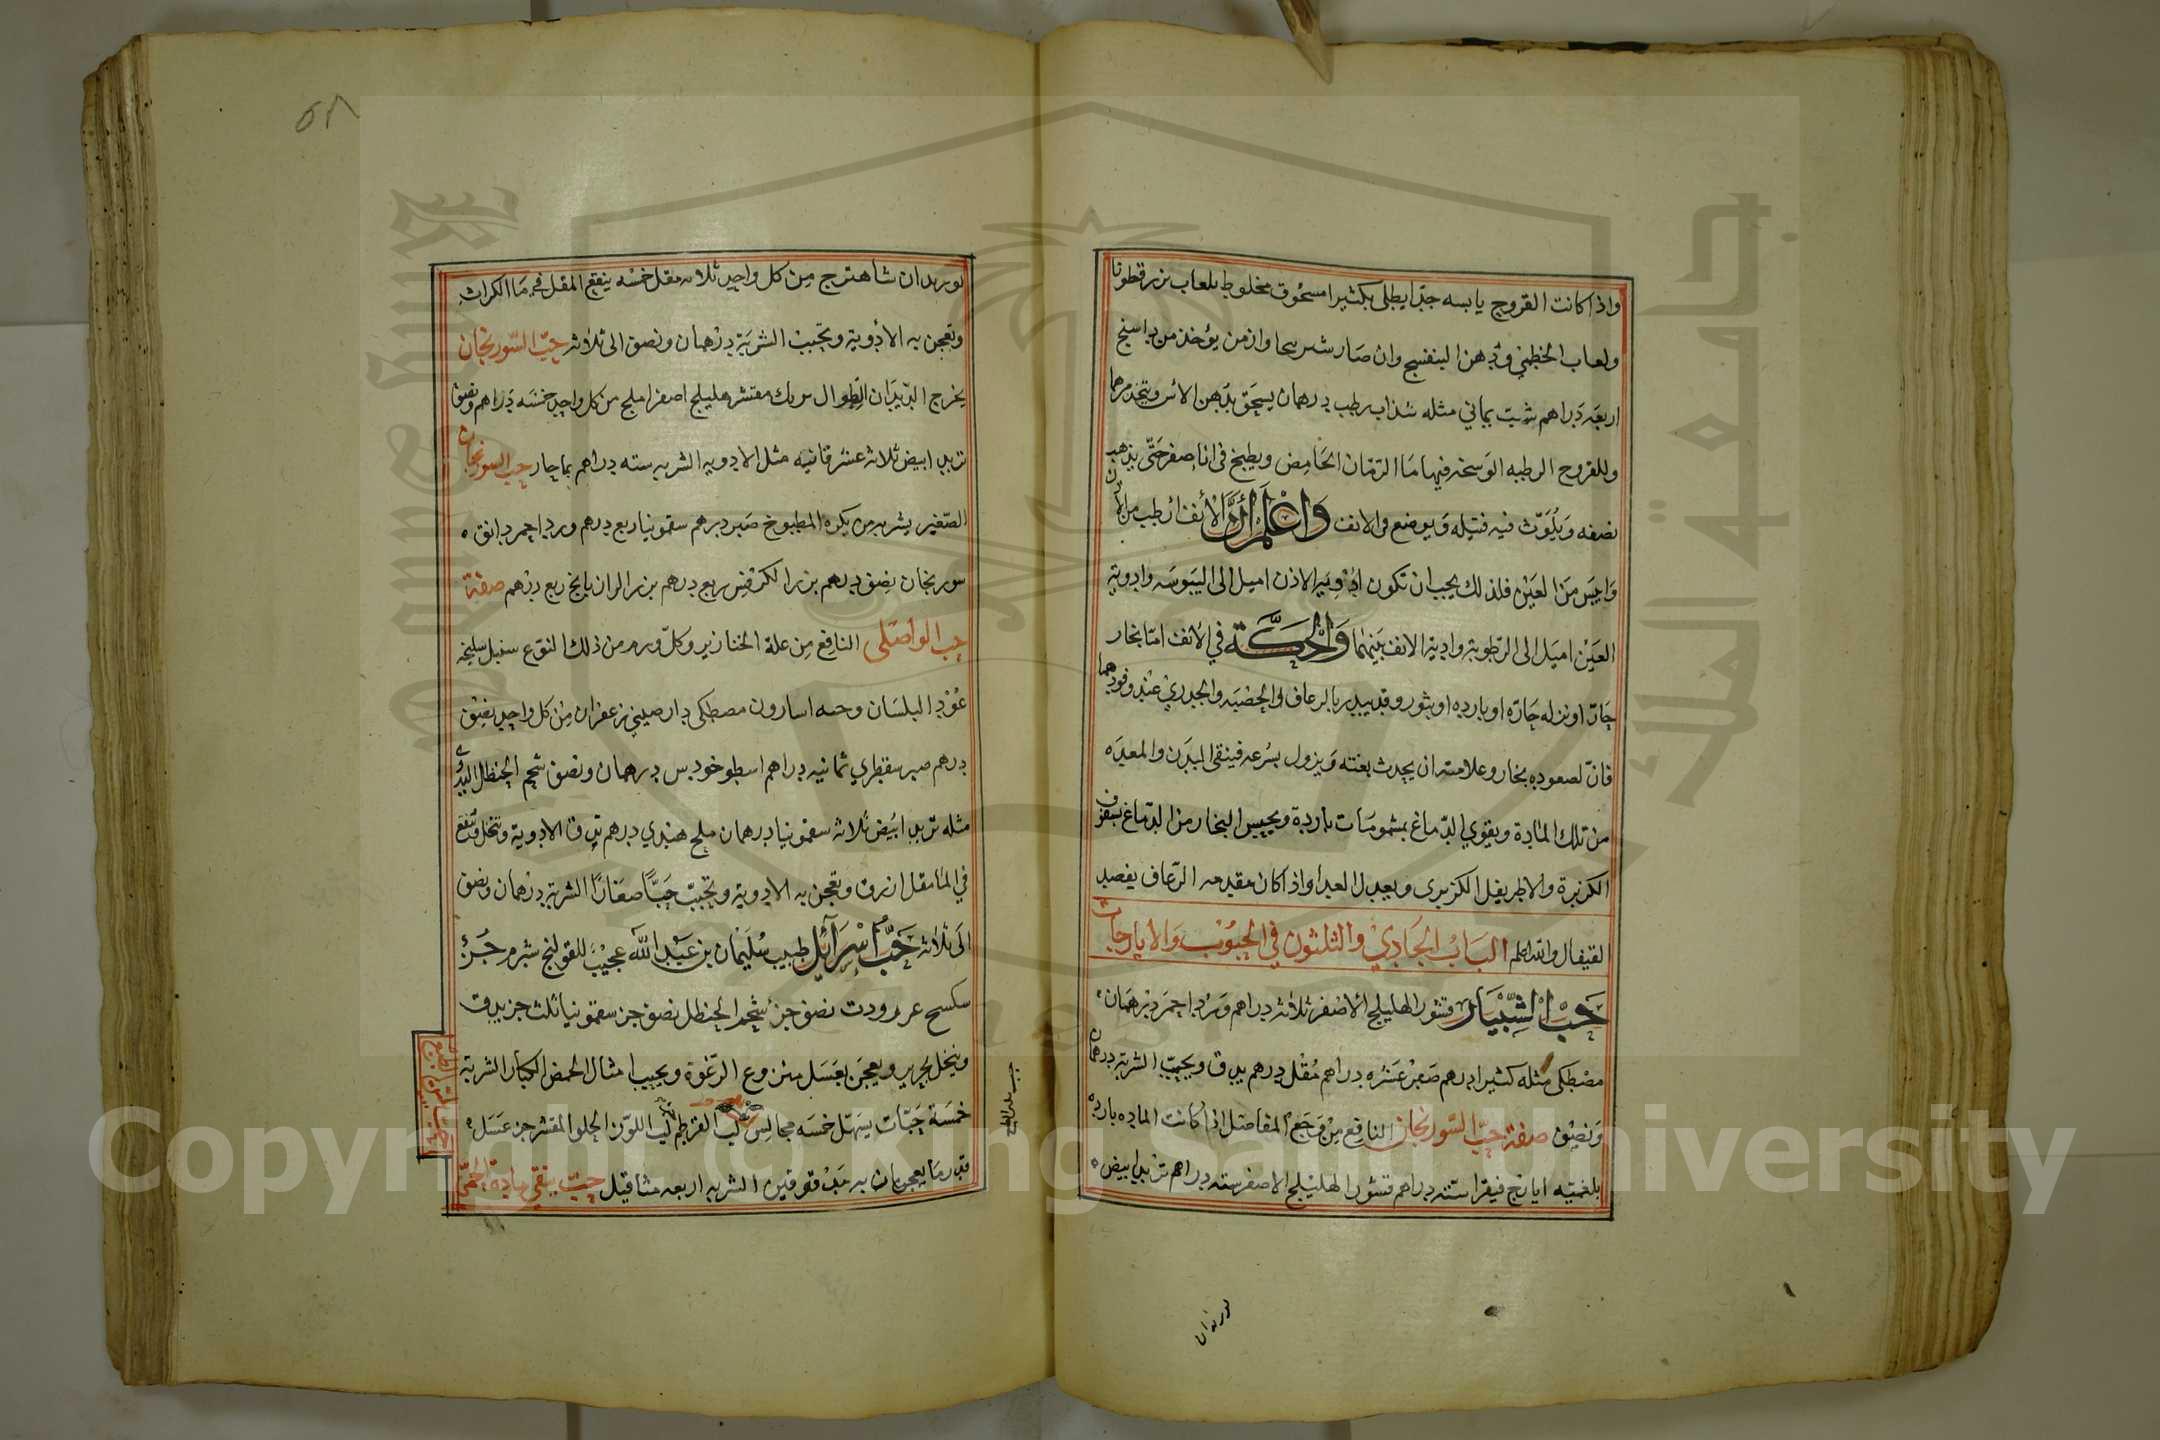 واذا كانت القروح يابسه جدا يطلى بكثيرا مسحوق مخلوط بلعاب بزرقطونا
ولعاب الخطمي ودهن البنفسج وان صار وازمن يؤخذ من
اربعه دراهم شب يماني مثله سذاب رطب درهمان يسحق بدهن الاس ويتخذ مرهما
وللقروح الرطبه الوسخه فيها ما الرمان الحامض ويطبخ في انا صفر حتى يذهب
نصفه ويلوث فيه فتيله ويوضع في الانف واعلم ان الانف ارطب من الاذن
وايبس من العين فلذلك يجب ان تكون ادوية الاذن اميل الى اليبوسه وادوية
العين اميل الى الرطوبة وادوية الانف بينهما والحكة في الانف اما بخار
حار او نزله حاره او بارده او بثور وقد يندر بالرعاف والحصبه والجدري عند وفودهما
فان لصعوده بخار وعلامته ان يحدث بغته ويزول بسرعه فينقى البدن والمعده
من تلك المادة ويقوي الدماغ بمشمومات باردة ويحبس البخار من الدماغ بسفوف
الكزبرة والاطريفل الكزبرى ويعدل الغدا واذا كان مقدمه الرعاف يفصد
القيفال والله اعلم الباب الحادي والثلثون في الحبوب والايارجات
حب الشبيار قشور الهليلج الاصفر ثلاثة دراهم ورد احمر درهمان
مصطكى مثله كثيرا درهم صبر عشره دراهم مقل درهم يدق ويحبب الشربة درهمان
ونصف صفة حب السورنجان النافع من وجع المفاصل اذا كانت الماده بارده
بلغميه ايارج فيقرا ستة دراهم قشور الهليلج الاصفر سته دراهم تربد ابيض
بوزيدان
٥٨
بوزيدان شاهترج من كل واحد ثلاثه مقل خمسه ينقع المقل في ما الكراث
وتعجن به الادوية وتحبب الشربة درهمان ونصف الى ثلاثة حب السورنجان
يخرج الديدان الطوال مقشر هليلج اصفر املج من كل واحد خمسه دراهم ونصف
تربد ابيض ثلاثة عشر مثل الادويه الشربه سته دراهم بما حار حب السورنجان
الصغير يشرب من بكره المطبوخ صبر درهم سقمونيا ربع درهم ورد احمر دانق
سورنجان نصف درهم بزر الكرفس ربع درهم بزر الرازيانج ربع درهم صفة
حب الواصلى النافع من علة الخنازير وكل ورم من ذلك النوع سنبل سليخه
عود البلسان وحبه اسارون مصطكى دارصيني زعفران من كل واحد نصف
درهم صبر سقطري ثمانيه دراهم اسطوخودس درهمان ونصف شحم الحنظل
مثله تربد ابيض ثلاثة سقمونيا درهمان ملح هندي درهم تدق الادوية وتنخل وتنقع
في الما مقل ازرق وتعجن به الادوية وتحبب حبا صغارا الشربة درهمان ونصف
الى ثلاثة حب اسرائل طبيب سليمان بن عبد الله عجيب للقولنج شبرم جزء
سكبينج نصف جزء شحم الحنظل نصف جز سقمونيا ثلث جز يدق
وينخل بحرير ويعجن بعسل منزوع الرغوة ويحبب امثال الحمص الكبار الشربة
خمسة حبات يسهل خمسه مجالس لب القرطم لب اللوز الحلو المقشر جز عسل
قدر ما يعجن به مدقوقين الشربه اربعه مثاقيل حب ينقي مادة الحمى